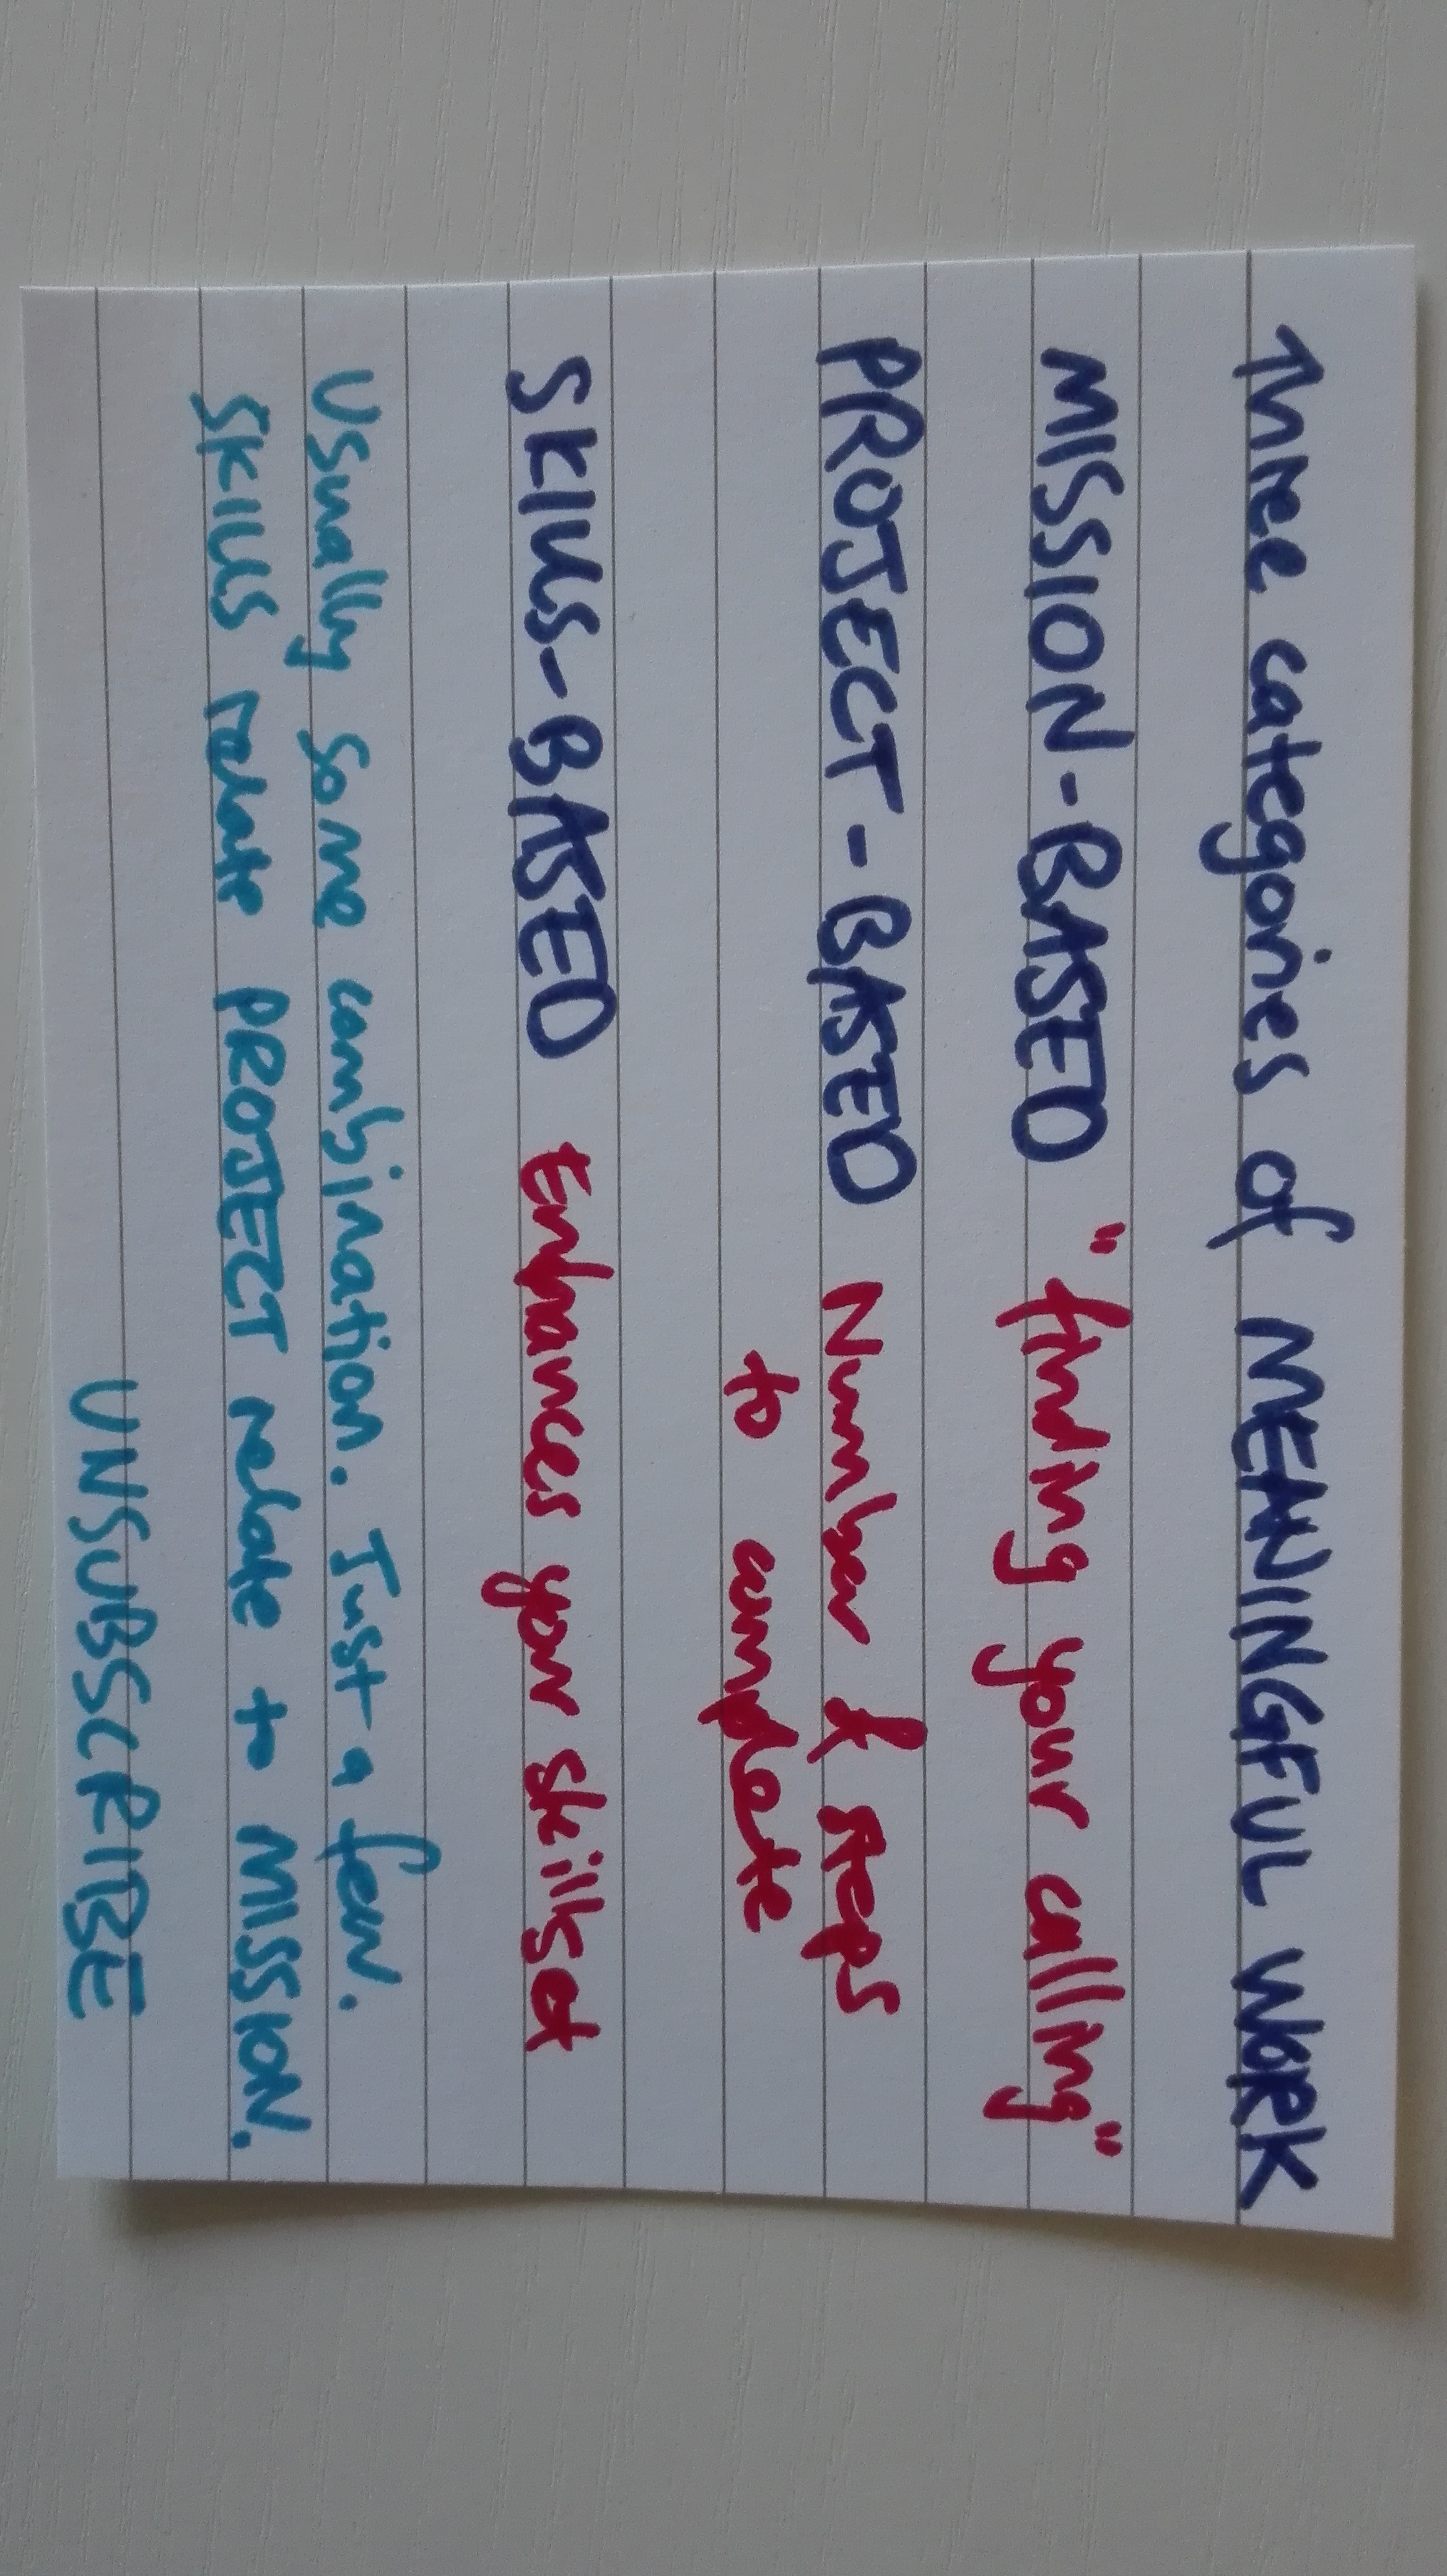 Three categories of MEANINGFUL WORK
MISSION-BASED "finding your calling"
PROJECT-BASED Number of steps
to complete
SKILLS-BASED Enhances your skillset
Usually some combination. Just a few.
SKILLS relate PROJECT relate to MISSION.
UNSUBSCRIBE